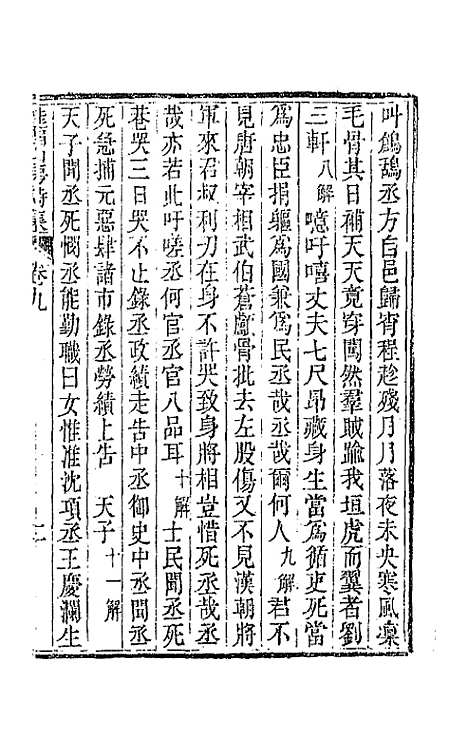 叫鵂鶹丞方自邑歸宵程趁殘月月落夜未央寒風凜
毛骨其日補天天竟穿閧然羣賊踰我垣虎而翼者劉
三軒八解噫吁嘻丈夫七尺昂藏身生當爲循吏死當
爲忠臣捐軀爲國兼爲民丞哉丞哉爾何人九解君不
見唐朝宰相武伯蒼顱骨批去左股傷又不見漢朝將
軍來君叔利刃在身不許哭致身將相豈惜死丞哉丞
哉亦若此吁嗟丞何官丞官八品耳十解士民聞丞死
巷哭三日哭不止錄丞政績走告中丞御史中丞聞丞
死急捕元惡肆諸市錄丞勞績上告天子十一解
天子聞丞死憫丞能勤職曰女惟准沈項丞王慶瀾生
卷九